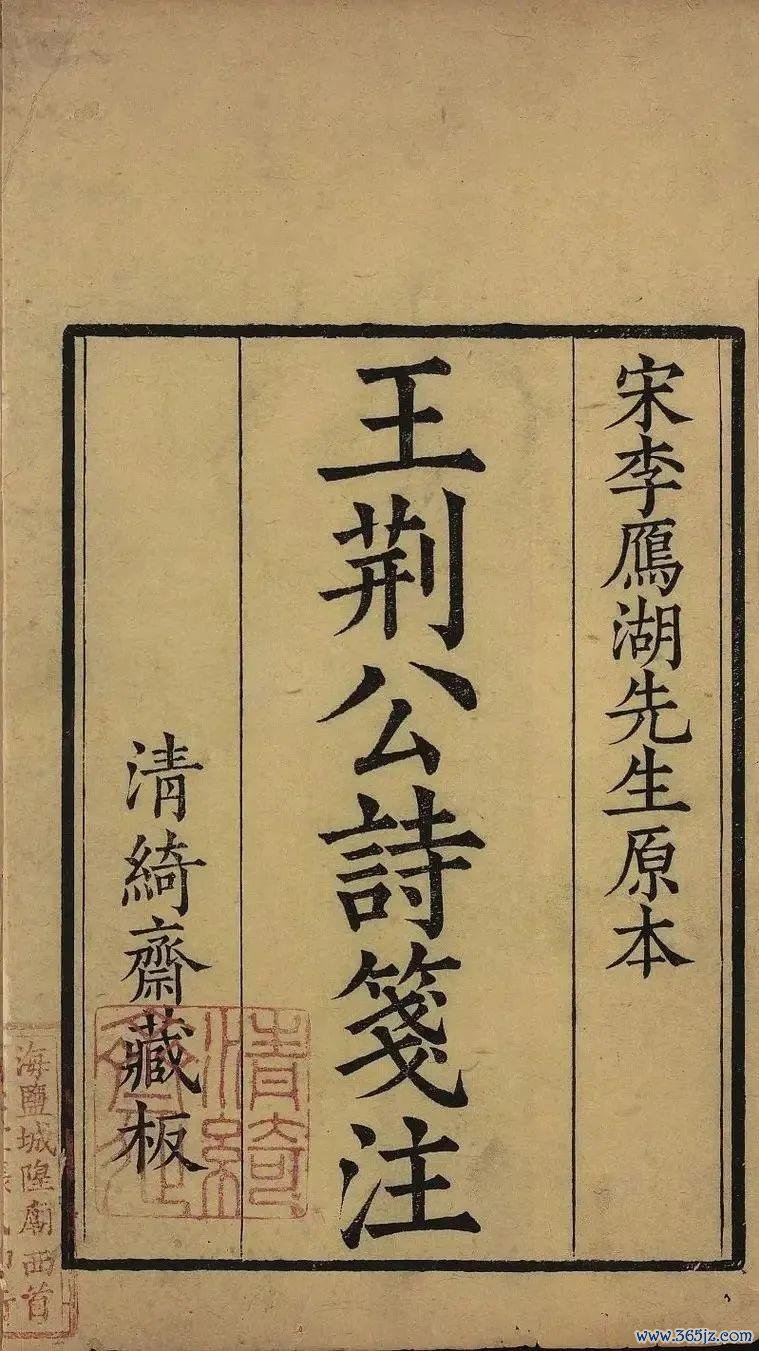 宋李鴈湖先生原本
王荆公詩箋注
清綺齋藏板
清綺
海鹽城隍廟西首
www.365jz.com